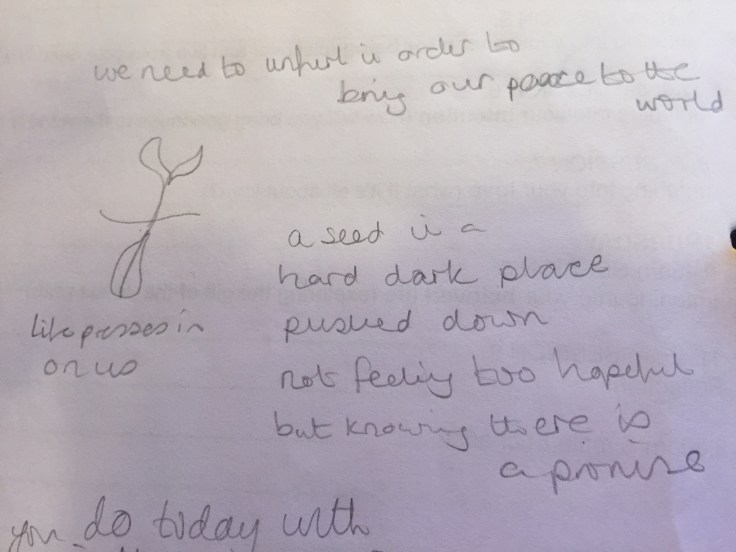 we need to unfurl in order to
bring our peace to the
world
a seed in a
hard dark place
pushed down
not feeling too hopeful
but knowing there is
a promise
life presses in
on us
you do today with